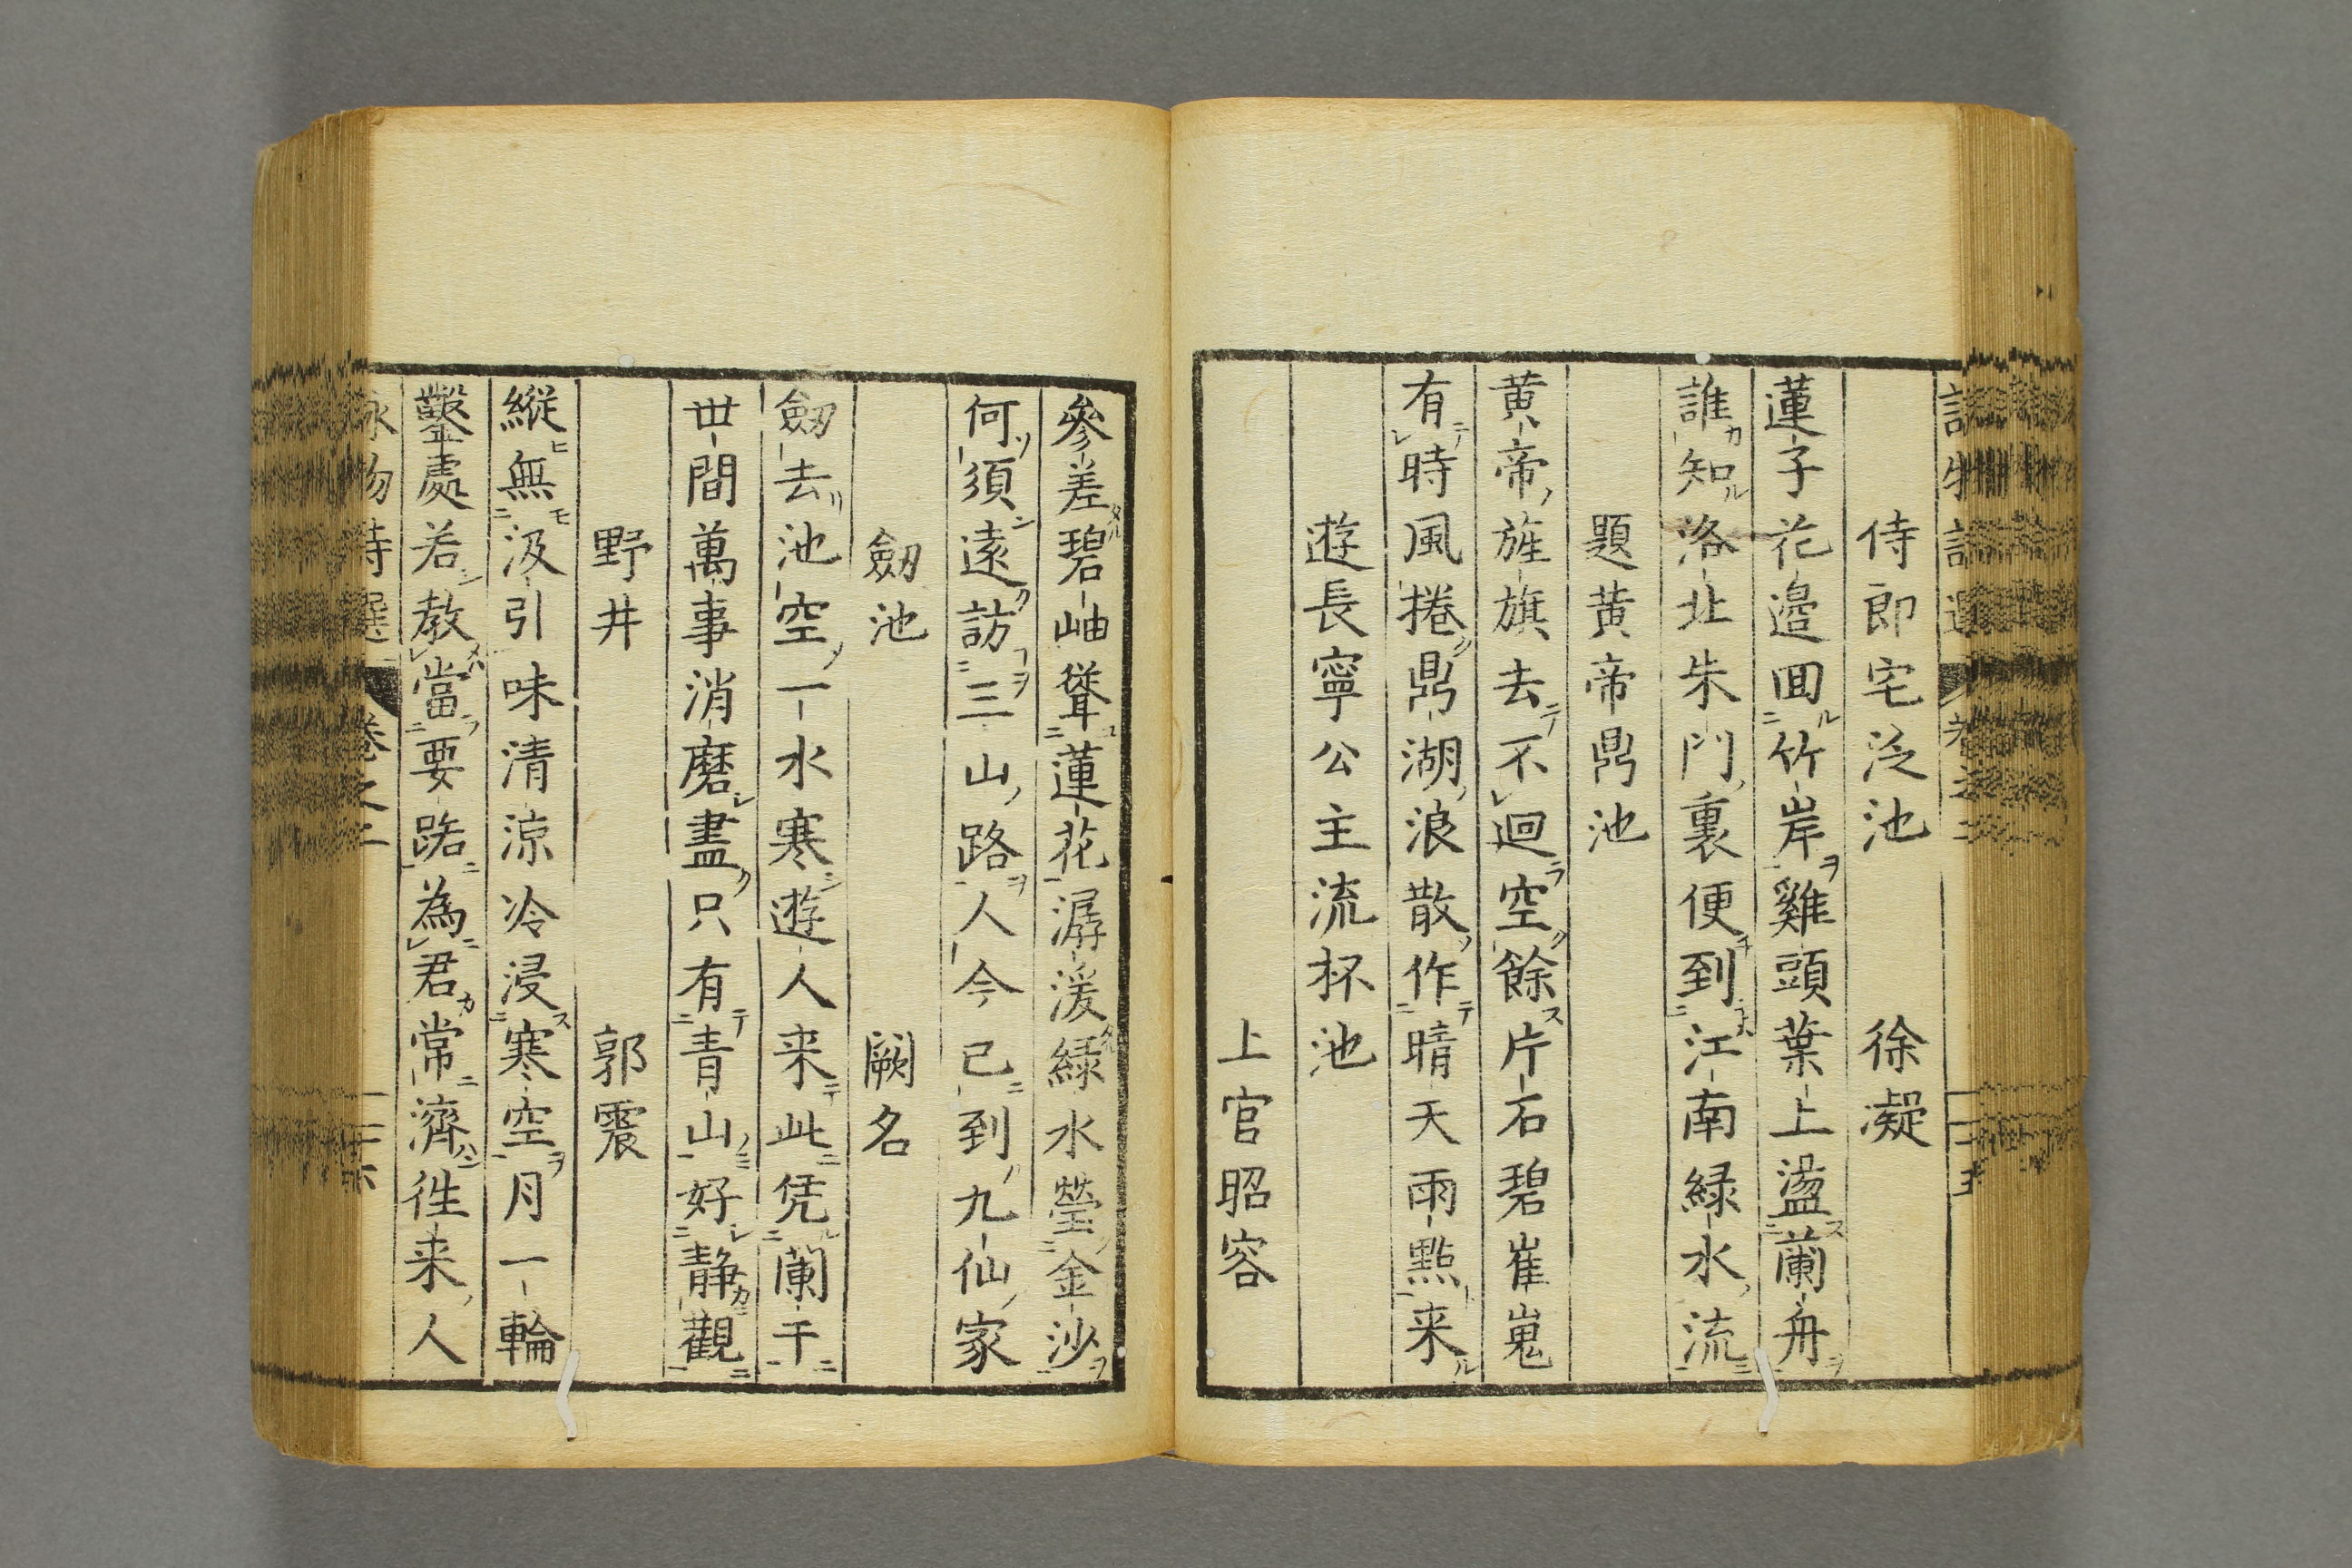 侍郎宅泛池　徐凝
蓮子花邉囬竹岸雞頭葉上盪蘭舟
誰知洛北朱門裏便到江南緑水流
題黄帝鼎池
黄帝旌旗去不迴空餘片石碧崔嵬
有時風捲鼎湖浪散作晴天雨點来
遊長寧公主流杯池
上官昭容
參差碧岫聳蓮花潺湲緑水瑩金沙
何須遠訪三山路人今已到九仙家
劔池　闕名
劔去池空一水寒遊人来此凭闌干
世間萬事消磨盡只有青山好静觀
野井　郭震
縱無汲引味清凉冷浸寒空月一輪
鑿處若教當要路為君常濟徃来人
詠物詩選　卷之二